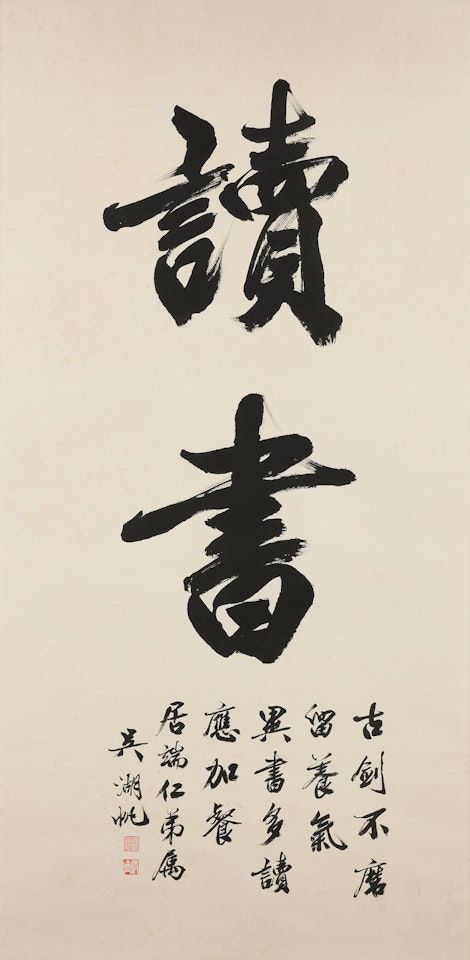 讀
書
古劍不磨
留養氣
異書多讀
應加餐
居端仁弟屬
吳湖帆